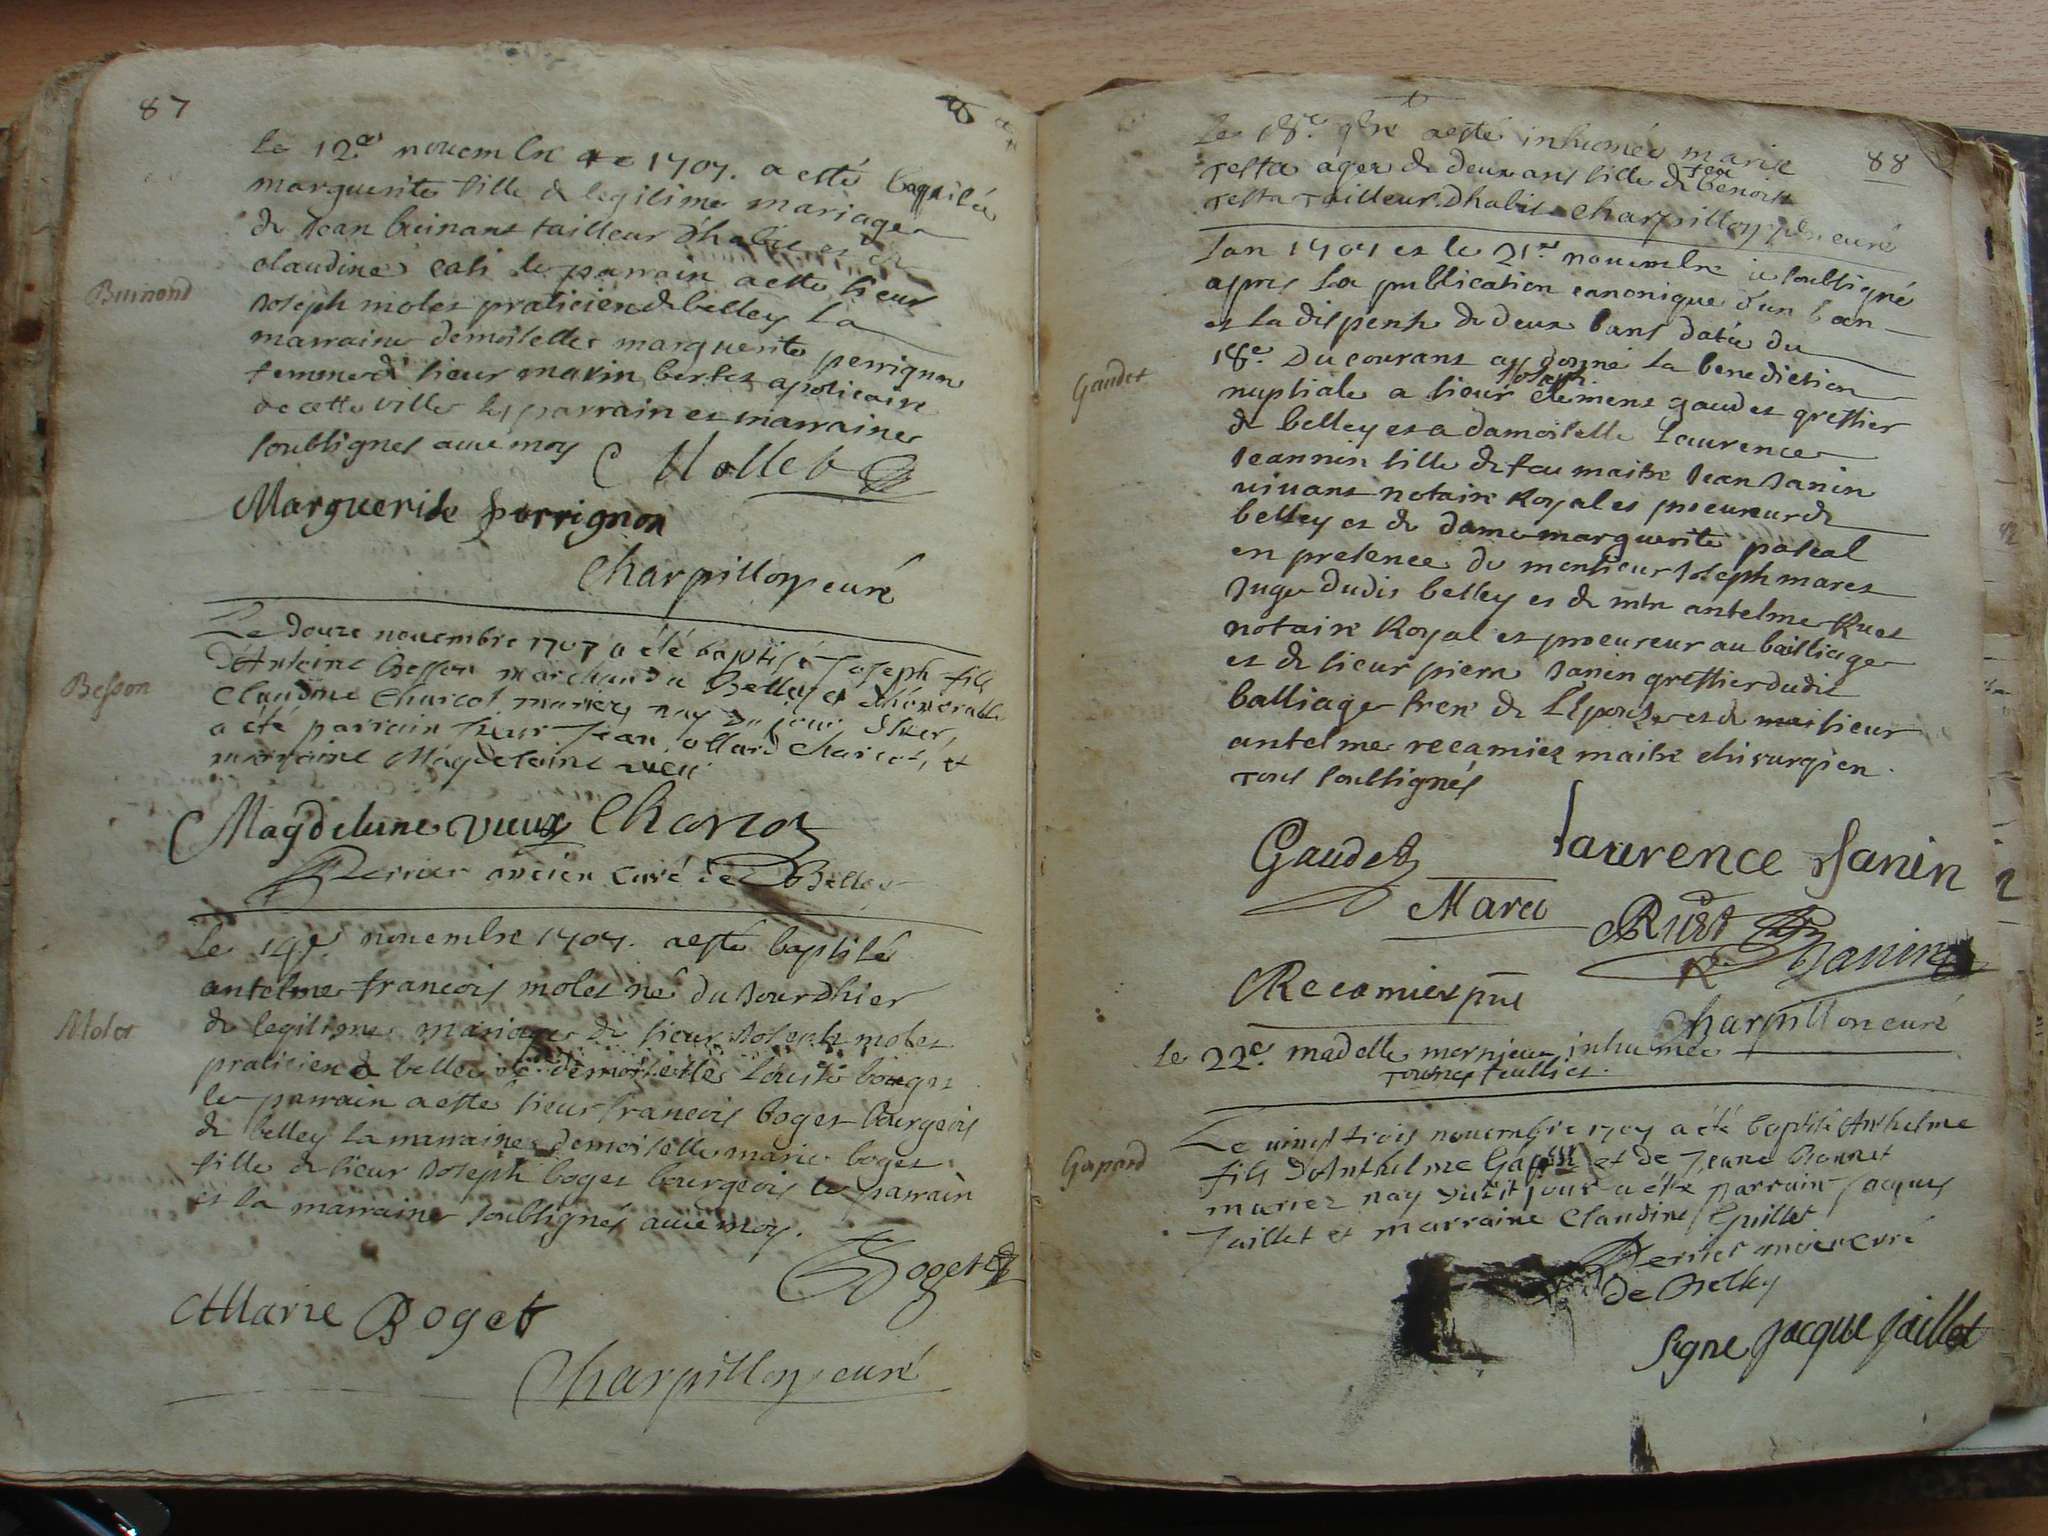 87
le 12e novembre 1707. a esté baptisée
marguerite fille de legitime mariage
de Jean buinant tailleur dhabit et de
claudine le parrain a esté sieur
Joseph molet praticien de belley La
marraine demoiselle marguerite perrignon
femme de sieur marin bertet apoticaire
de cette ville les parrain et marraine
soubsignes avec moy Mollet
Buinand
Marguerite perrignon
Charpillon curé
Le douze novembre 1707 a été baptisé Joseph fils
d'Antoine Besson marchand a Belley et d'honorable
Claudine Charcot mariez nay du jour d'hier,
a été parrain sieur Jean Charcot, et
marraine Magdelaine vieu
Besson
Magdeleine vieux Charcot
Perrier ancien curé de Belley
le 19e novembre 1707. a esté baptisé
antelme francois molet né du Jour dhier
de legitime mariage de sieur Joseph molet
praticien de belley et de demoiselle Louise boget
le parrain a esté sieur francois boget bourgeois
de belley la marraine demoiselle marie boget
fille de sieur Joseph boget bourgeois le parrain
et la marraine soubsignés avec moy.
Molet
Boget
Marie Boget
Charpillon curé
88
Le 18e 9bre a esté inhumée marie
testa agee de deux ans fille de feu benoist
testa tailleur dhabit Charpillon curé
Lan 1707 et le 21e novembre ie soubsigné
apres la publication canonique d'un ban
et la dispense de deux bans datée du
18e du courant ay donné la benediction
nuptiale a sieur Joseph clement gaudet greffier
de belley et a damoiselle Laurence
Jeannin fille de feu maitre Jean Janin
vivant notaire Royal et procureur de
belley et de dame marguerite pascal
en presence de monsieur Joseph maret
Juge dudit belley et de mtre antelme Ruet
notaire Royal et procureur au bailliage
et de sieur pierre Janin greffier dudit
balliage frere de L'Epouse et de maitre sieur
antelme recamier maitre chirurgien
tous soubsignés
Gaudet
Gaudet
Laurence Janin
Maret
Ruet
Janin
Recamier pnt
Charpillon curé
le 22e madelle mornieux inhumée
tournez feulliet.
Le vingt trois novembre 1707 a été baptisé Anthelme
fils d'Anthelme et de Jeane Bonnet
mariez nay dudit jour a été parrain Jacques
Jaillet et marraine Claudine Guillet
Gaspard
Perrier ancien curé
de Belley
signe Jacque Jaillet